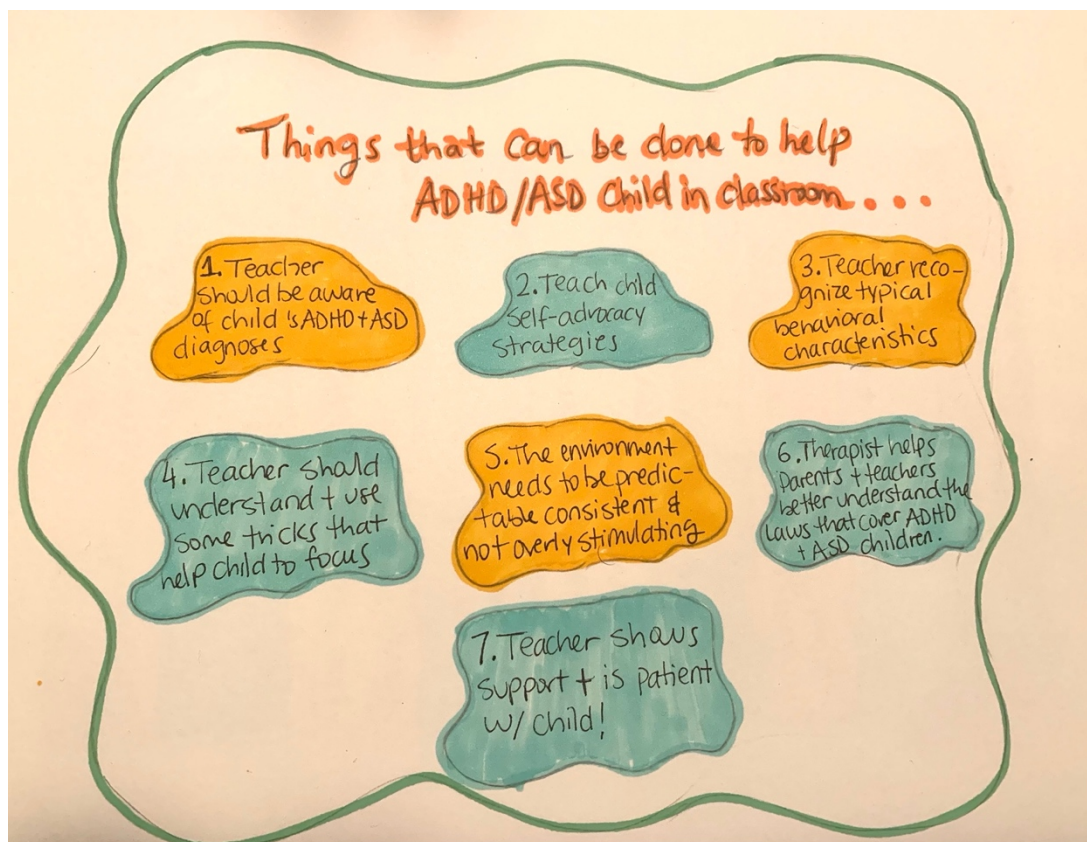 Things that can be done to help
ADHD/ASD Child in classroom....
1. Teacher
should be aware
of child's ADHD+ASD
diagnoses
2. Teach child
self-advocacy
strategies
3. Teacher reco-
gnize typical
behavioral
characteristics
4. Teacher should
understand + use
some tricks that
help child to focus
5. The environment
needs to be predic-
table consistent &
not overly stimulating
6. Therapist helps
Parents + teachers
better understand the
laws that cover ADHD
+ ASD children.
7. Teacher shows
support + is patient
w/ child!